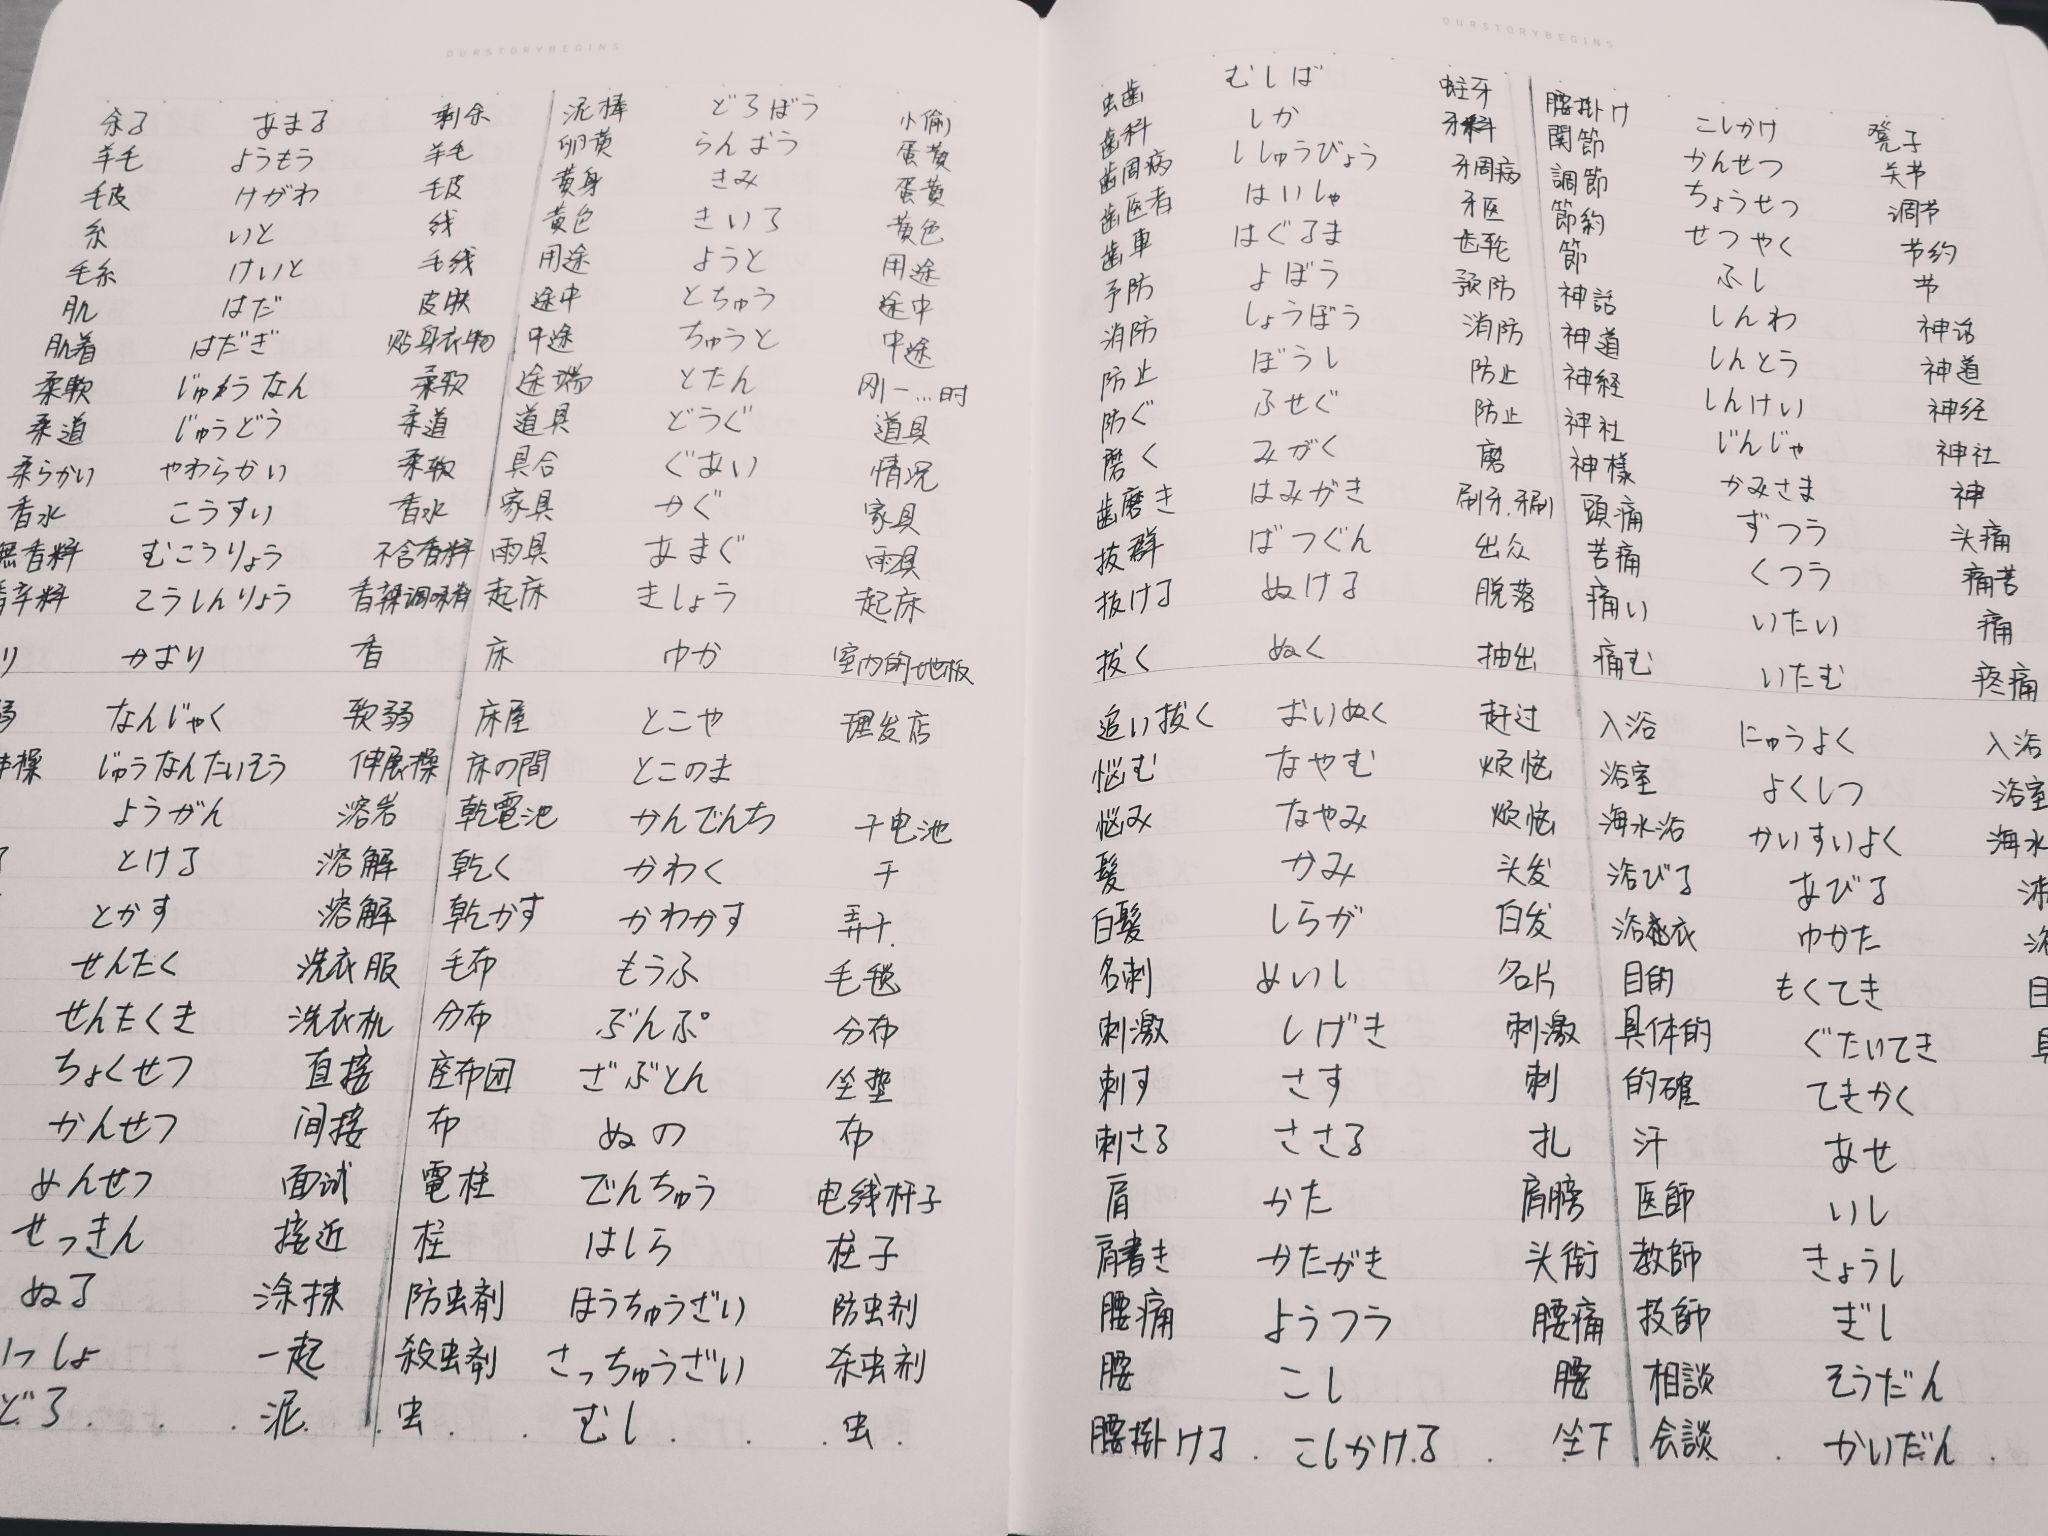 OURSTORYBEGINS
余る あまる 剰余
羊毛 ようもう 羊毛
毛皮 けがわ 毛皮
糸 いと 线
毛糸 けいと 毛线
肌 はだ 皮肤
肌着 はだぎ 贴身衣物
柔軟 じゅうなん 柔软
柔道 じゅうどう 柔道
柔らかい やわらかい 柔软
香水 こうすい 香水
無香料 むこうりょう 不含香料
香辛料 こうしんりょう 香辣调味料
り かおり 香
弱 なんじゃく 软弱
体操 じゅうなんたいそう 伸展操
ようがん 溶岩
る とける 溶解
とかす 溶解
せんたく 洗衣服
せんたくき 洗衣机
ちょくせつ 直接
かんせつ 间接
めんせつ 面试
せっきん 接近
ぬる 涂抹
いっしょ 一起
どろ 泥
泥棒 どろぼう 小偷
卵黄 らんおう 蛋黄
黄身 きみ 蛋黄
黄色 きいろ 黄色
用途 ようと 用途
途中 とちゅう 途中
中途 ちゅうと 中途
途端 とたん 刚一…时
道具 どうぐ 道具
具合 ぐあい 情况
家具 かぐ 家具
雨具 あまぐ 雨具
起床 きしょう 起床
床 ゆか 室内的地板
床屋 とこや 理发店
床の間 とこのま
乾電池 かんでんち 干电池
乾く かわく 干
乾かす かわかす 弄干.
毛布 もうふ 毛毯
分布 ぶんぷ 分布
座布団 ざぶとん 坐垫
布 ぬの 布
電柱 でんちゅう 电线杆子
柱 はしら 柱子
防虫剤 ほうちゅうざい 防虫剂
殺虫剤 さっちゅうざい 杀虫剂
虫 むし 虫
OURSTORYBEGINS
虫歯 むしば 蛀牙
歯科 しか 牙科
歯周病 ししゅうびょう 牙周病
歯医者 はいしゃ 牙医
歯車 はぐるま 齿轮
予防 よぼう 预防
消防 しょうぼう 消防
防止 ぼうし 防止
防ぐ ふせぐ 防止
磨く みがく 磨
歯磨き はみがき 刷牙.牙刷
抜群 ばつぐん 出众
抜ける ぬける 脱落
抜く ぬく 抽出
追い抜く おいぬく 赶过
悩む なやむ 烦恼
悩み なやみ 烦恼
髪 かみ 头发
白髪 しらが 白发
名刺 めいし 名片
刺激 しげき 刺激
刺す さす 刺
刺さる ささる 扎
肩 かた 肩膀
肩書き かたがき 头衔
腰痛 ようつう 腰痛
腰 こし 腰
腰掛ける こしかける 坐下
腰掛け こしかけ 凳子
関節 かんせつ 关节
調節 ちょうせつ 调节
節約 せつやく 节约
節 ふし 节
神話 しんわ 神话
神道 しんとう 神道
神経 しんけい 神经
神社 じんじゃ 神社
神様 かみさま 神
頭痛 ずつう 头痛
苦痛 くつう 痛苦
痛い いたい 痛
痛む いたむ 疼痛
入浴 にゅうよく 入浴
浴室 よくしつ 浴室
海水浴 かいすいよく 海水
浴びる あびる
浴衣 ゆかた
目的 もくてき 目
具体的 ぐたいてき 具
的確 てきかく
汗 あせ
医師 いし
教師 きょうし
技師 ぎし
相談 そうだん
会談 かいだん